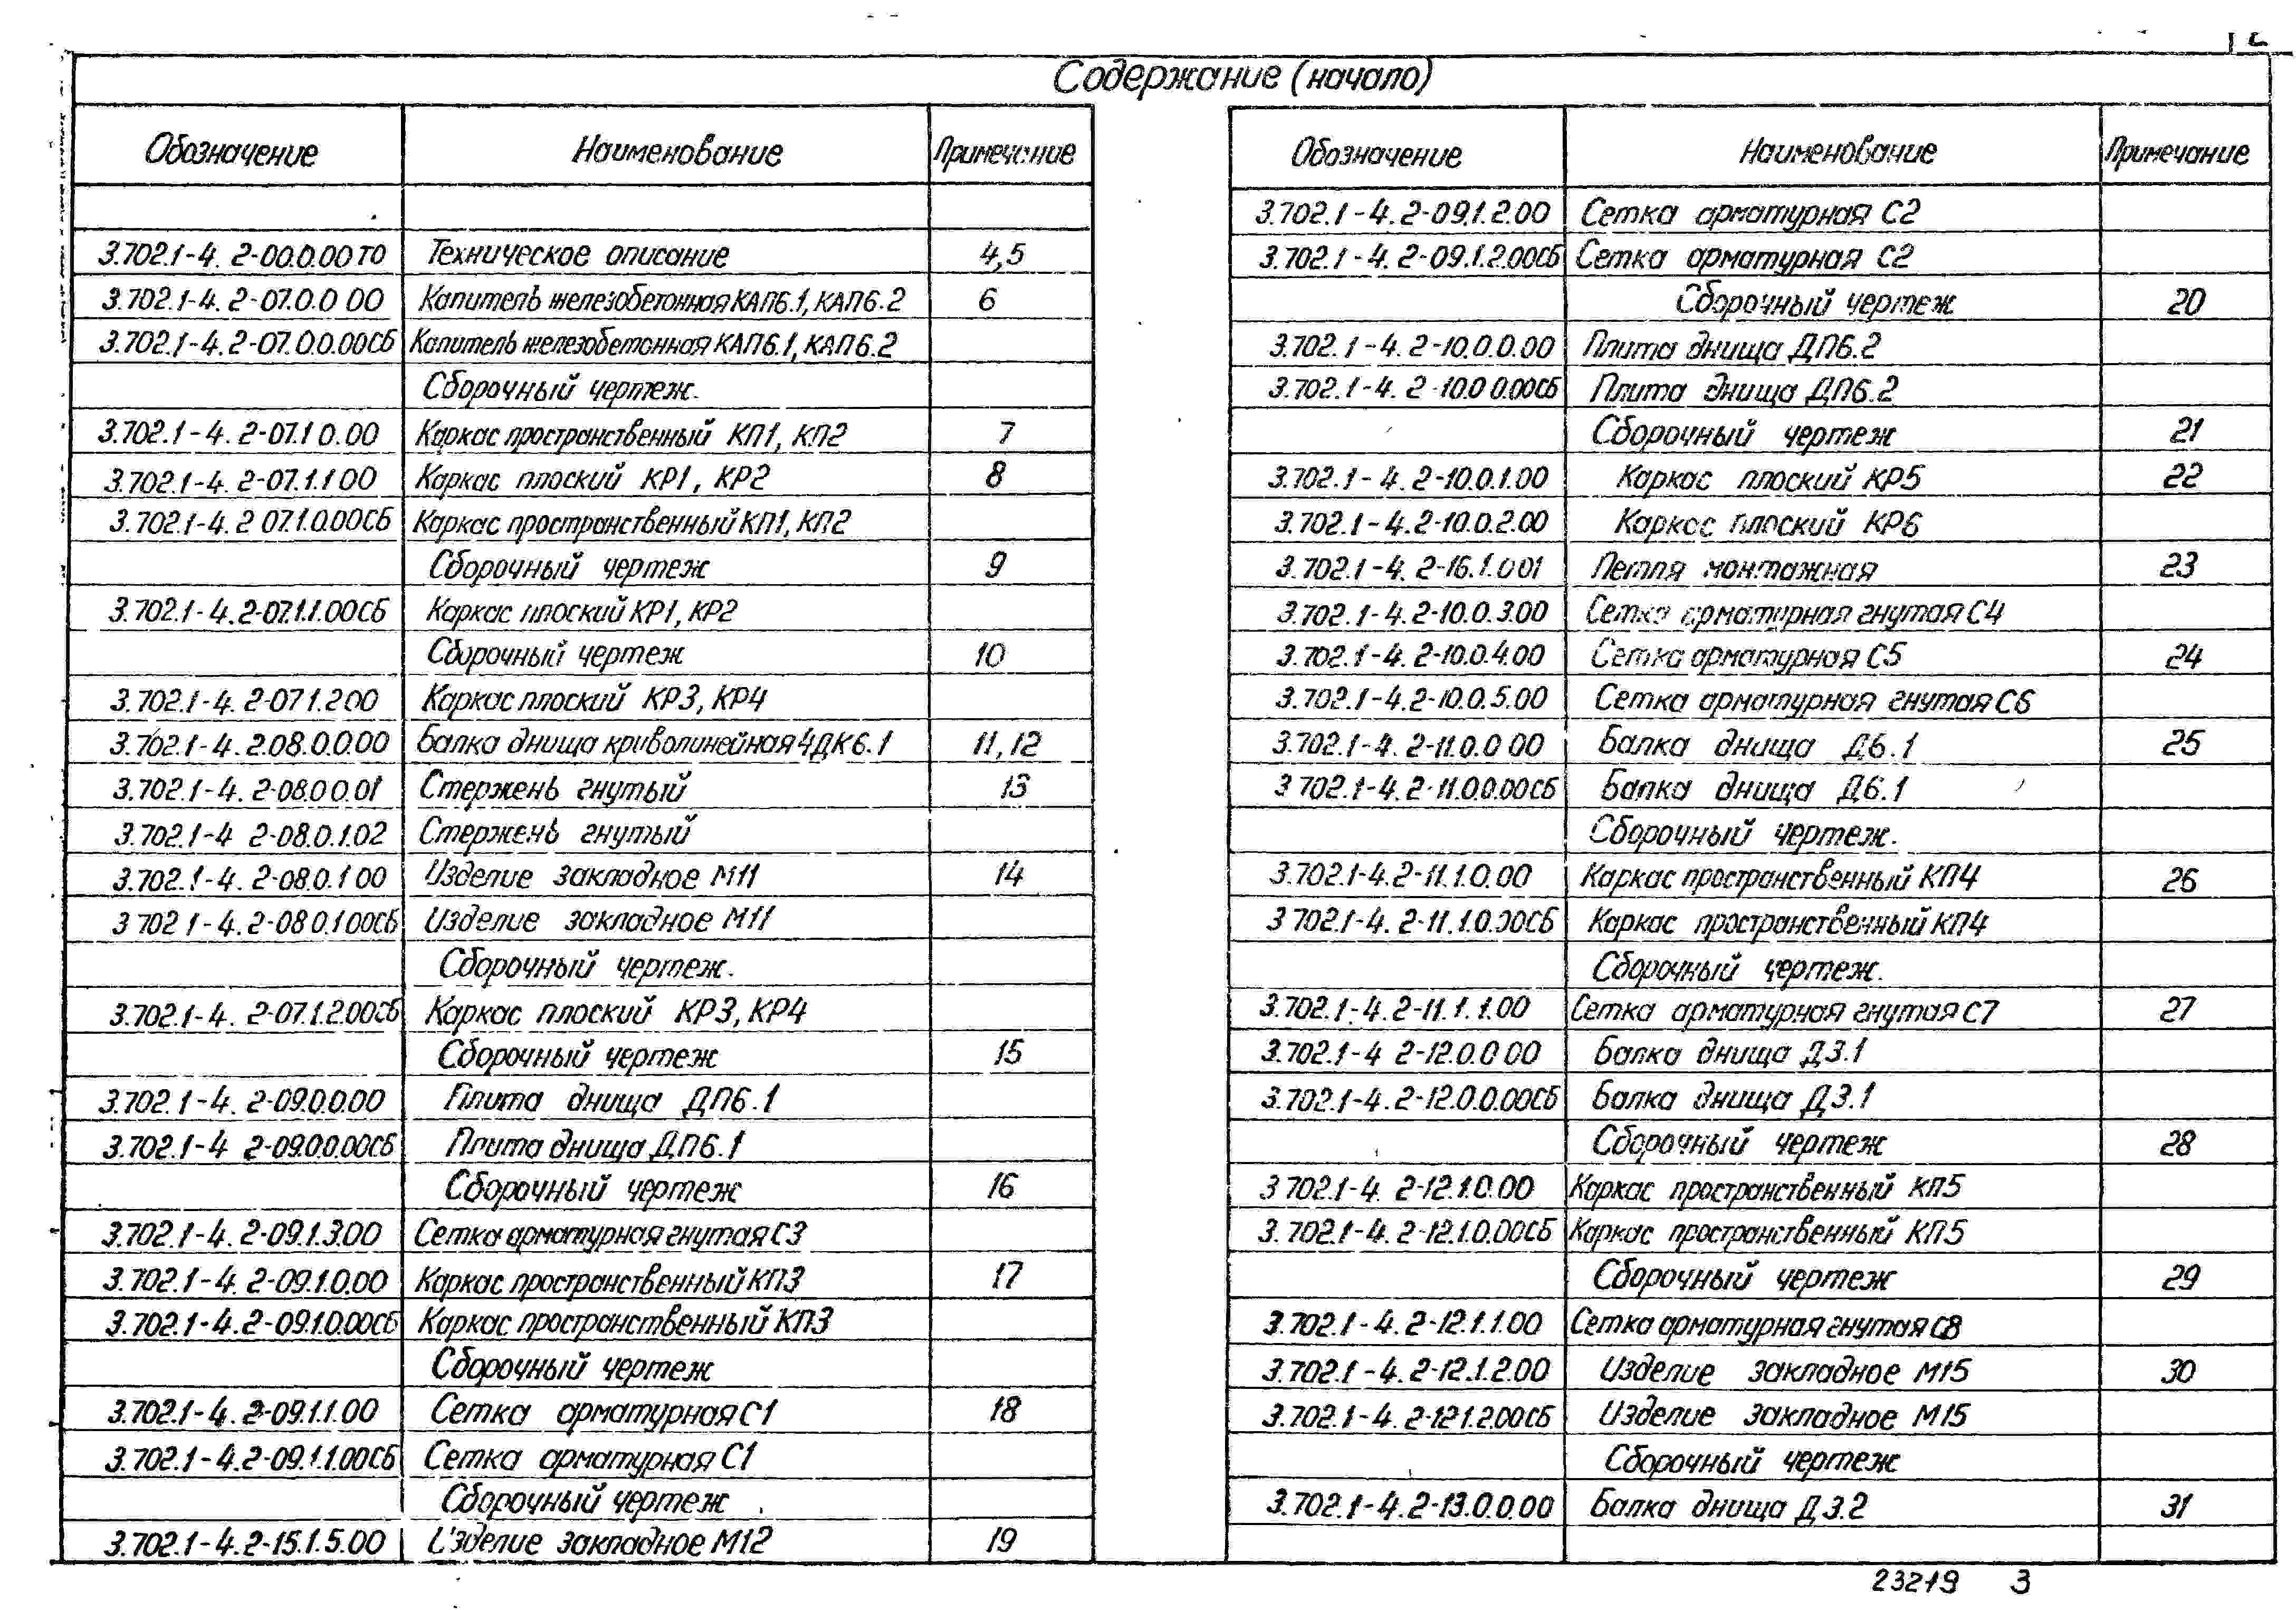 Содержание (начало)
Обозначение Наименование Примечание
3.702.1-4. 2-00.0.00 ТО Техническое описание 4,5
3.702.1-4. 2-07.0.0 00 Капитель железобетонная КАП6.1, КАП6.2 6
3.702.1-4. 2-07.0.0.00СБ Капитель железобетонная КАП6.1, КАП6.2
Сборочный чертеж.
3.702.1-4. 2-07.1 0.00 Каркас пространственный КП1, КП2 7
3.702.1-4. 2-07.1.1 00 Каркас плоский КР1, КР2 8
3.702.1-4. 2 07.1.0.00СБ Каркас пространственный КП1, КП2
Сборочный чертеж 9
3.702.1-4.2-07.1.1.00СБ Каркас плоский КР1, КР2
Сборочный чертеж 10
3.702.1-4. 2-07 1.2 00 Каркас плоский КР3, КР4
3.702.1-4. 2.08.0.0.00 Балка днища криволинейная 4ДК6.1 11,12
3.702.1-4. 2-08.0 0.01 Стержень гнутый 13
3.702.1-4 2-08.0.1.02 Стержень гнутый
3.702.1-4. 2-08.0.1 00 Изделие закладное М11 14
3 702 1-4.2-08 0.1 00СБ Изделие закладное М11
Сборочный чертеж.
3.702.1-4. 2-07.1.2.00СБ Каркас плоский КР3, КР4
Сборочный чертеж 15
3.702.1-4. 2-09.0.0.00 Плита днища ДП6.1
3.702.1-4 2-09.0.0.00СБ Плита днища ДП6.1
Сборочный чертеж 16
3.702.1-4.2-09.1.3.00 Сетка арматурная гнутая С3
3.702.1-4. 2-09.1.0.00 Каркас пространственный КП3 17
3.702.1-4.2-09.1.0.00СБ Каркас пространственный КП3
Сборочный чертеж
3.702.1-4. 2-09.1.1.00 Сетка арматурная С1 18
3.702.1-4.2-09.1.1.00СБ Сетка арматурная С1
Сборочный чертеж
3.702.1-4.2-15.1.5.00 Изделие закладное М12 19
Обозначение Наименование Примечание
3.702.1-4. 2-09.1.2.00 Сетка арматурная С2
3.702.1-4. 2-09.1.2.00СБ Сетка арматурная С2
Сборочный чертеж 20
3.702.1-4. 2-10.0.0.00 Плита днища ДП6.2
3.702.1-4. 2-10.0 0.00СБ Плита днища ДП6.2
Сборочный чертеж 21
3.702.1-4.2-10.0.1.00 Каркас плоский КР5 22
3.702.1-4.2-10.0.2.00 Каркас плоский КР6
3.702.1-4. 2-16.1.001 Петля монтажная 23
3.702.1-4.2-10.0.3.00 Сетка арматурная гнутая С4
3.702.1-4. 2-10.0.4.00 Сетка арматурная С5 24
3.702.1-4.2-10.0.5.00 Сетка арматурная гнутая С6
3.702.1-4. 2-11.0.0 00 Балка днища Д6.1 25
3 702.1-4.2-11.0.0.00СБ Балка днища Д6.1
Сборочный чертеж.
3.702.1-4.2-11.1.0.00 Каркас пространственный КП4 26
3 702.1-4. 2-11.1.0.00СБ Каркас пространственный КП4
Сборочный чертеж.
3.702.1-4.2-11.1.1.00 Сетка арматурная гнутая С7 27
3.702.1-4 2-12.0.0 00 Балка днища Д3.1
3.702.1-4.2-12.0.0.00СБ Балка днища Д3.1
Сборочный чертеж 28
3 702.1-4. 2-12.1.0.00 Каркас пространственный КП5
3.702.1-4.2-12.1.0.00СБ Каркас пространственный КП5
Сборочный чертеж 29
3.702.1-4.2-12.1.1.00 Сетка арматурная гнутая С8
3.702.1-4.2-12.1.2.00 Изделие закладное М15 30
3.702.1-4.2-12 1.2.00СБ Изделие закладное М15
Сборочный чертеж
3.702.1-4.2-13.0.0.00 Балка днища Д3.2 31
23219 3